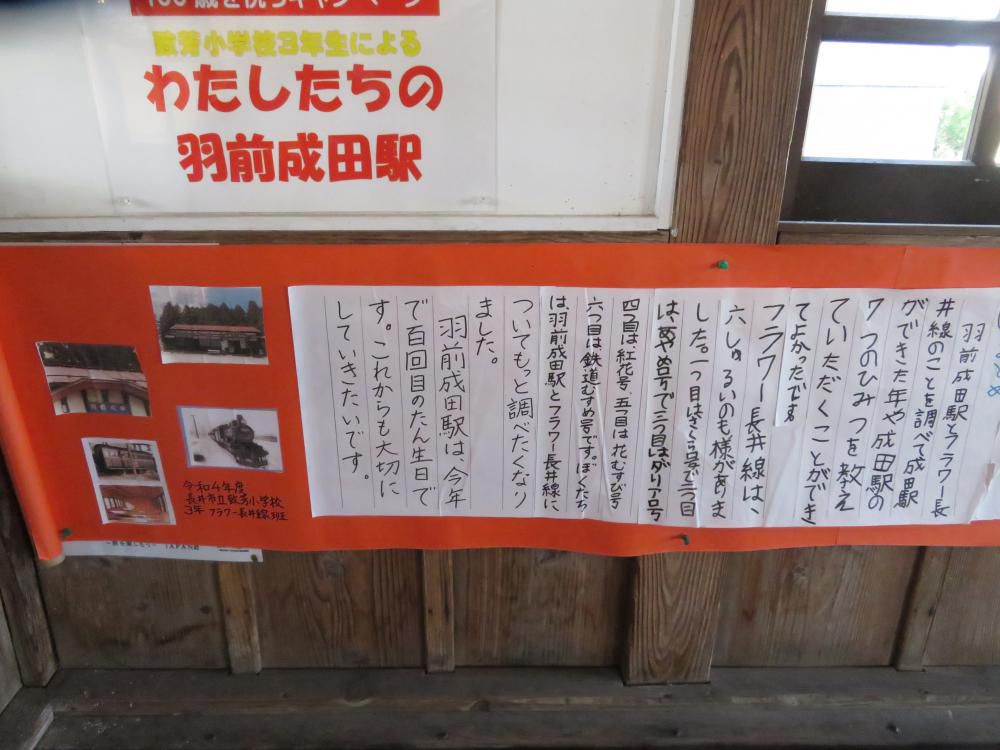 100歳を祝うキャンペーン
致芳小学校3年生による
わたしたちの
羽前成田駅
まとめ
羽前成田駅とフラワー長
井線のことを調べて成田駅
ができた年や成田駅の
7つのひみつを教え
ていただくことができ
てよかったです
フラワー長井線は、
六しゅるいのも様がありま
した。一つ目はさくら号で二つ目
は、あやめ号で三つ目はダリア号
四つ目は紅花号、五つ目は花むすび号
六つ目は鉄道むすめ号です。ぼくたち
は、羽前成田駅とフラワー長井線に
ついてもっと調べたくなり
ました。
羽前成田駅は、今年
で百回目のたん生日で
す。これからも大切に
していきたいです。
令和4年度
長井市立致芳小学校
3年 フラワー長井線班
JAPAN